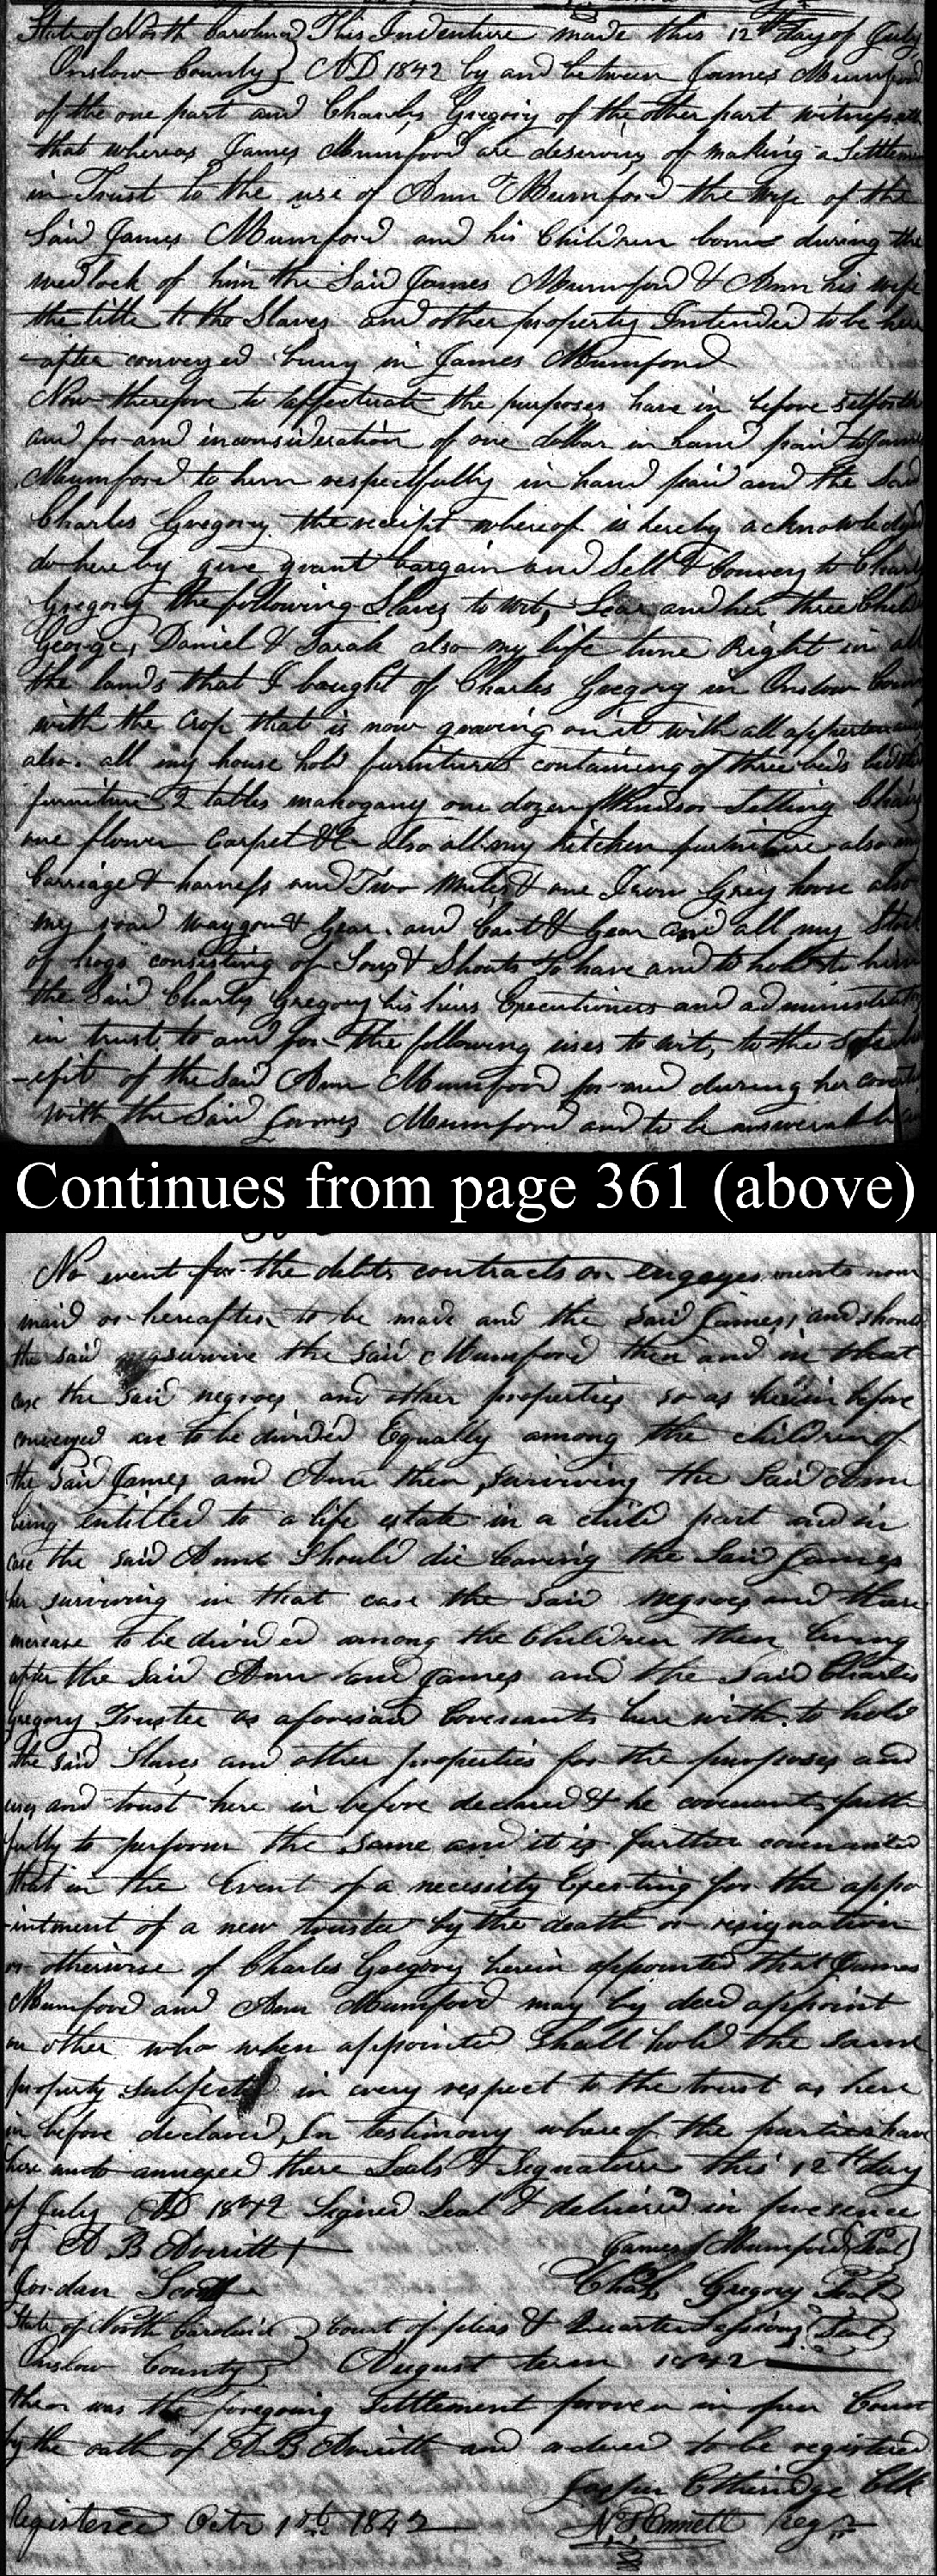 State of North Carolina } This Indenture made this 12th day of July
Onslow County } AD 1842 by and between James Mumford
of the one part and Charles Gregory of the other part witnesseth
that whereas James Mumford are desirous of making a Settlement
in Trust to the use of Ann Mumford the wife of the
Said James Mumford and his Children born during the
wedlock of him the Said James Mumford & Ann his wife
the title to the Slaves and other property Intended to be here
after conveyed being in James Mumford
Now therefore to effectuate the purposes here in before setforth
and for and inconsideration of one dollar in hand paid to James
Mumford to him respectfully in hand paid and the Said
Charles Gregory the receipt whereof is hereby acknowledged
do here by give grant bargain and Sell & Convey to Charles
Gregory the following Slaves to wit, Lear and her three Child
George, Daniel & Sarah also my life time Right in all
the lands that I bought of Charles Gregory in Onslow County
with the Crop that is now growing on it with all appurtenances
also. all my house hold furniture containing of three beds
furniture 2 tables mahogany one dozen Windsor Setting Chairs
one flower Carpet &C also all my kitchen furniture also my
Carriage & harness and Two mules & one Iron Grey horse also
my road waygon & Gear. and Cart & Gear and all my Stock
of hogs consisting of Sows & Shoats To have and to hold to him
the Said Charles Gregory his heirs Executioners and administrators
in trust to and for the following uses to wit, to the
-efit of the Said Ann Mumford for and during her
with the Said James Mumford and to be answerable
Continues from page 361 (above)
No event for the debts contracts or engagements now
maid or hereafter to be made and the Said James, and should
the said survive the Said Mumford then and in that
case the Said negroes and other properties so as herein before
conveyed are to be divided Equally among the children of
the Said James and Ann then surviving the Said Ann
being entitled to a life estate in a child part and in
case the said Ann Should die leaving the Said James
her surviving in that case the Said negroes and there
increase to be divided among the Children then living
after the Said Ann and James and the Said Charles
Gregory Trustee as aforesaid Covenants here with to hold
the said Slaves and other properties for the purposes and
uses and trust here in before declared & he covenants faith
fully to perform the Same and it is further covenanted
that in the Event of a necessity Existing for the appo
-intment of a new trustee by the death or resignation
or otherwise of Charles Gregory herein appointed that James
Mumford and Ann Mumford may by deed appoint
an other who when appointed Shall hold the same
property subjected in every respect to the trust as here
in before declared, In testimony whereof the parties have
here unto annexed there Seals & Signature this 12th day
of July AD 1842 Signed Seal & delivered in presence
of A B Averitt James Mumford (Seal)
Jordan Scott Chas Gregory Seal
State of North Carolina } Court of pleas & Quarter Sessions Seal
Onslow County } August term 1842
then was the foregoing Settlement proven in open Court
by the oath of A B Averitt and ordered to be registered
Jasper Etheridge Clk
Registered Octr 1st 1842 Regr